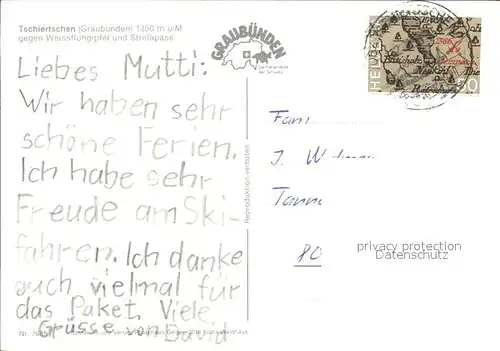 Tschiertschen (Graubünden) 1350 m ü/M
gegen Weissfluhgipfel und Strelapass
GRAUBÜNDEN
Die Ferienecke
der Schweiz
Liebes Mutti:
Wir haben sehr
schöne Ferien.
Ich habe sehr
Freude am Ski-
fahren. Ich danke
auch vielmal für
das Paket. Viele
Grüsse von David
Reproduktion verboten
HELVETIA
Fam
J. W
Tann
80
privacy protection
Datenschutz
Nr.